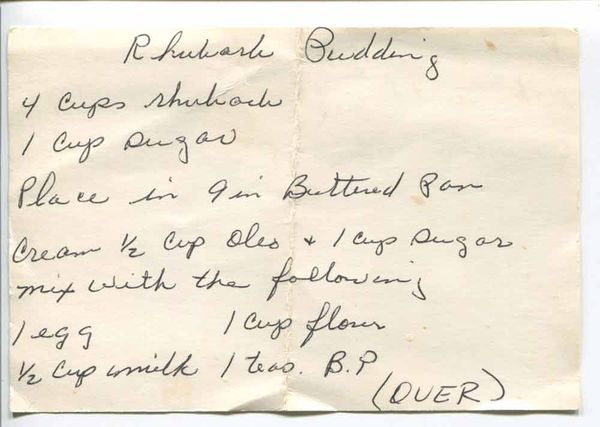 Rhubarb Pudding
4 cups rhubarb
1 cup sugar
Place in 9 in Buttered Pan
Cream 1/2 Cup Oleo + 1 cup sugar
mix with the following
1 egg 1 cup flour
1/2 cup milk 1 teas. B.P
(OVER)